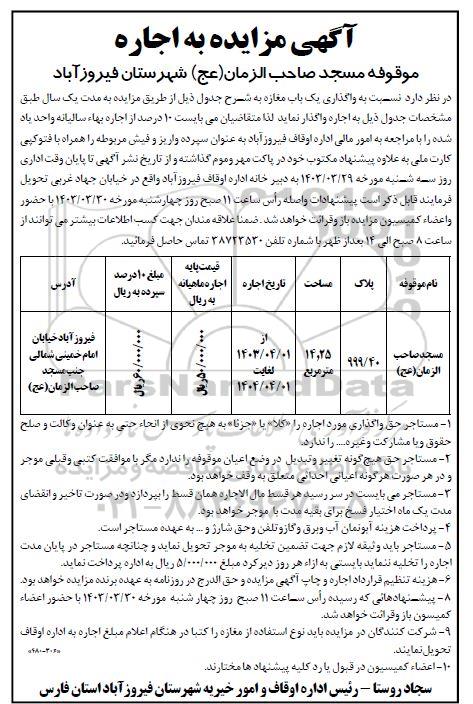 آگهی مزایده به اجاره
موقوفه مسجد صاحب الزمان(عج) شهرستان فیروزآباد
در نظر دارد نسبت به واگذاری یک باب مغازه به شرح جدول ذیل از طریق مزایده به مدت یک سال طبق
مشخصات جدول ذیل به اجاره واگذار نماید لذا متقاضیان می بایست ۱۰ درصد از اجاره بهاء سالیانه واحد یاد
شده را با مراجعه به امور مالی اداره اوقاف فیروزآباد به عنوان سپرده واریز و فیش مربوطه را همراه با فتوکپی
کارت ملی به علاوه پیشنهاد مکتوب خود در پاکت مهر وموم گذاشته و از تاریخ نشر آگهی تا پایان وقت اداری
روز سه شنبه مورخه ۱۴۰۳/۰۳/۲۹ به دبیر خانه اداره اوقاف فیروزآباد واقع در خیابان جهاد غربی تحویل
فرمایند قابل ذکر است پیشنهادات واصله رأس ساعت ۱۱ صبح روز چهارشنبه مورخه ۱۴۰۳/۰۳/۳۰ با حضور
واعضاء کمیسیون مزایده باز وقرائت خواهد شد. ضمنا علاقه مندان جهت کسب اطلاعات بیشتر می توانند از
ساعت ۸ صبح الی ۱۴ بعداز ظهر با شماره تلفن ۳۸۷۲۳۵۳۰ تماس حاصل فرمائید.
نام موقوفه
پلاک
مساحت
تاریخ اجاره
قیمت پایه
اجاره ماهیانه
به ریال
مبلغ ۱۰درصد
سپرده به ریال
آدرس
مسجدصاحب
الزمان(عج)
۹۹۹/۴۰
۱۴,۲۵
مترمربع
از
۱۴۰۳/۰۴/۰۱
لغایت
۱۴۰۴/۰۴/۰۱
۵۰/۰۰۰/۰۰۰ریال
۶۰/۰۰۰/۰۰۰ریال
فیروزآباد خیابان
امام خمینی شمالی
جنب مسجد
صاحب الزمان(عج)
۱- مستاجر حق واگذاری مورد اجاره را «کلا» یا «جزئا» به هیچ نحوی از انحاء حتی به عنوان وکالت و صلح
حقوق ویا مشارکت وغیره.... را ندارد.
۲- مستاجر حق هیچ گونه تغییر وتبدیل در وضع اعیان موقوفه را ندارد مگر با موافقت کتبی وقبلی موجر
و در هر صورت هر گونه اعیانی احداثی متعلق به وقف خواهد بود.
۳- مستاجر می بایست در سر رسید هر قسط مال الاجاره همان قسط را بپردازد ودر صورت تاخیر و انقضای
مدت یک ماه اختیار فسخ برای بقیه مدت با موجر خواهد بود.
۴- پرداخت هزینه آبونمان آب وبرق وگازوتلفن وحق شارژ و ... به عهده مستاجر است.
۵- مستاجر باید وثیقه لازم جهت تضمین تخلیه به موجر تحویل نماید و چنانچه مستاجر در پایان مدت
اجاره را تخلیه ننماید بایستی به ازاء هر روز دیرکرد مبلغ ۵/۰۰۰/۰۰۰ ریال به اداره پرداخت نماید.
۶- هزینه تنظیم قرارداد اجاره و چاپ آگهی مزایده و حق الدرج در روزنامه به عهده برنده مزایده خواهد بود.
۸- پیشنهادهائی که رسیده رأس ساعت ۱۱ صبح روز چهار شنبه مورخه ۱۴۰۳/۰۳/۳۰ با حضور اعضاء
کمیسون باز وقرائت خواهد شد.
۹- شرکت کنندگان در مزایده باید نوع استفاده از مغازه را کتبا در هنگام اعلام مبلغ اجاره به اداره اوقاف
تحویل نمایند.
«۶۸۰-۳۰۶»
۱۰- اعضاء کمیسیون در قبول یا رد کلیه پیشنهاد ها مختارند.
سجاد روستا – رئیس اداره اوقاف و امور خیریه شهرستان فیروزآباد استان فارس